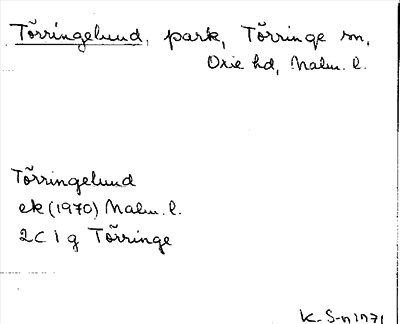 Törringelund, park, Törringe sn,
Oxie hd, Malm. l.
Törringelund
ek (1970) Malm. l.
2C 1 g Törringe
K. S-n 1971